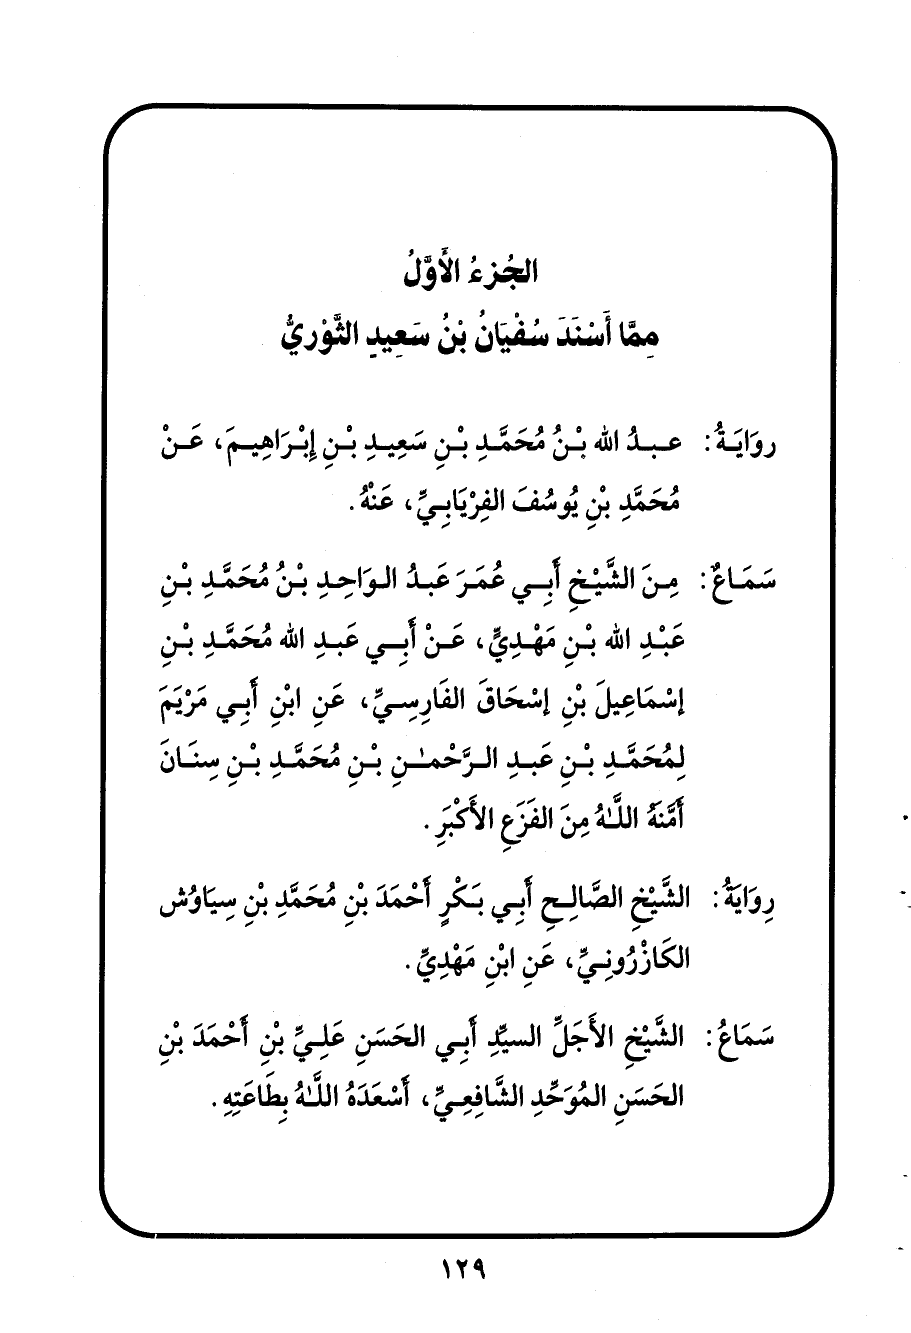 الجُزءُ الأَوَّلُ
مِمَّا أَسْنَدَ سُفْيَانُ بْنُ سَعِيدٍ الثَّوْرِيُّ
روَايَةُ: عبدُ الله بْنُ مُحَمَّدِ بْنِ سَعِيدِ بْنِ إِبْرَاهِيمَ، عَنْ
مُحَمَّدِ بْنِ يُوسُفَ الفِرْيَابِيِّ، عَنْهُ.
سَمَاعٌ: مِنَ الشَّيْخِ أَبِي عُمَرَ عَبدُ الوَاحِدِ بْنُ مُحَمَّدِ بْنِ
عَبْدِ الله بْنِ مَهْدِيٍّ، عَنْ أَبِي عَبدِ الله مُحَمَّدِ بْنِ
إِسْمَاعِيلَ بْنِ إِسْحَاقَ الفَارِسِيِّ، عَنِ ابْنِ أَبِي مَرْيَمَ
لِمُحَمَّدِ بْنِ عَبدِ الرَّحْمٰنِ بْنِ مُحَمَّدِ بْنِ سِنَانَ
أَمَّنَهُ اللَّهُ مِنَ الفَزَعِ الأَكْبَرِ.
رِوَايَةُ: الشَّيْخِ الصَّالِحِ أَبِي بَكْرٍ أَحْمَدَ بْنِ مُحَمَّدِ بْنِ سِيَاوُش
الكَازْرُونِيِّ، عَنِ ابْنِ مَهْدِيٍّ.
سَمَاعُ: الشَّيْخِ الأَجَلِّ السيِّدِ أَبِي الحَسَنِ عَلِيِّ بْنِ أَحْمَدَ بْنِ
الحَسَنِ المُوَحِّدِ الشَّافِعِيِّ، أَسْعَدَهُ اللَّهُ بِطَاعَتِهِ.
١٢٩